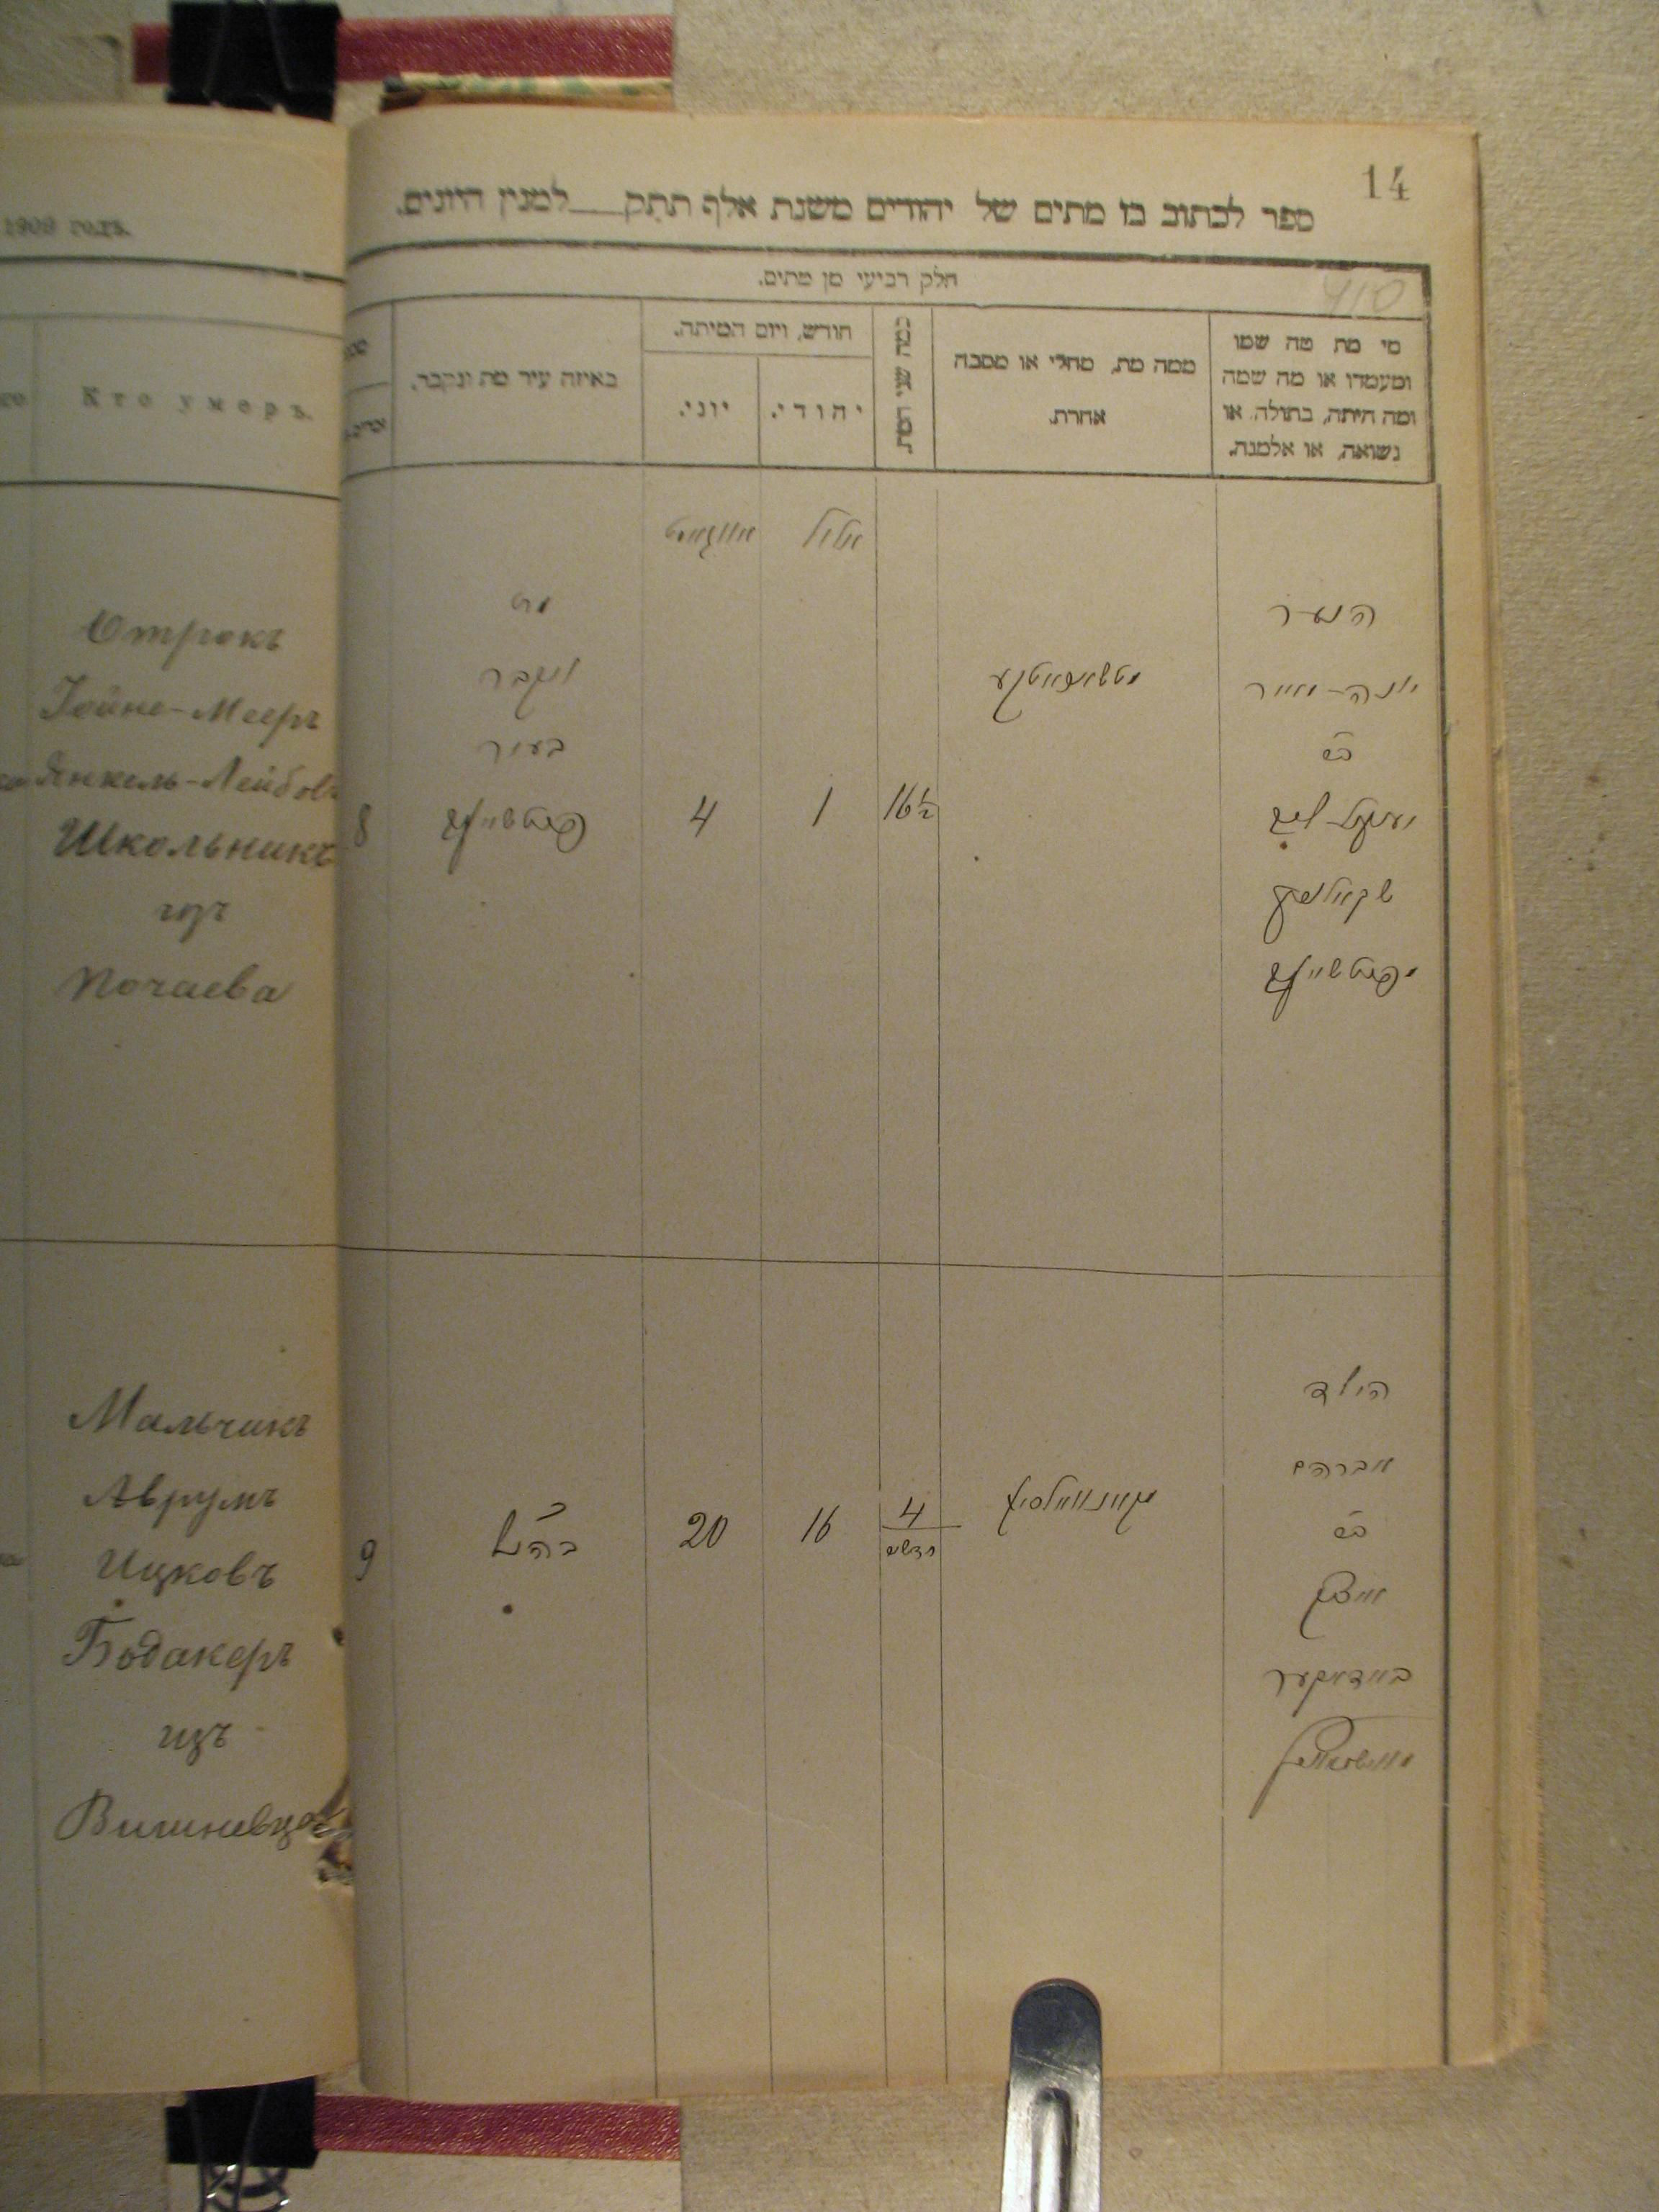 14
1909 годъ.
ספר לכתוב בו מתים של יהודים משנת אלף תתק למנין היונים.
חלק רביעי מן מתים.
910
Кто умеръ.
מי מת מה שמו
ומעמדו או מה שמה
ומה היתה, בתולה, או
נשואה, או אלמנה.
ממה מת, מחלי או מסבה
אחרת.
כמה שני המת
חודש, ויום המיתה.
יהודי.
יוני.
באיזה עיר מת ונקבר.
אלול
אווגוסט
Отрокъ
Іойне-Мееръ
Янкель-Лейбовъ
Школьникъ
изъ
Почаева
הנער
יונה-מאיר
ב״ר
יענקל-ליב
שקאלניק
מפאטשייעוו
16½
1
4
מת
ונקבר
בעיר
פאטשייעוו
8
Мальчикъ
Аврумъ
Ицковъ
Бодакеръ
изъ
Вишневца
הילד
אברהם
ב״ר
איצק
באדאקער
4
חדשים
16
20
9